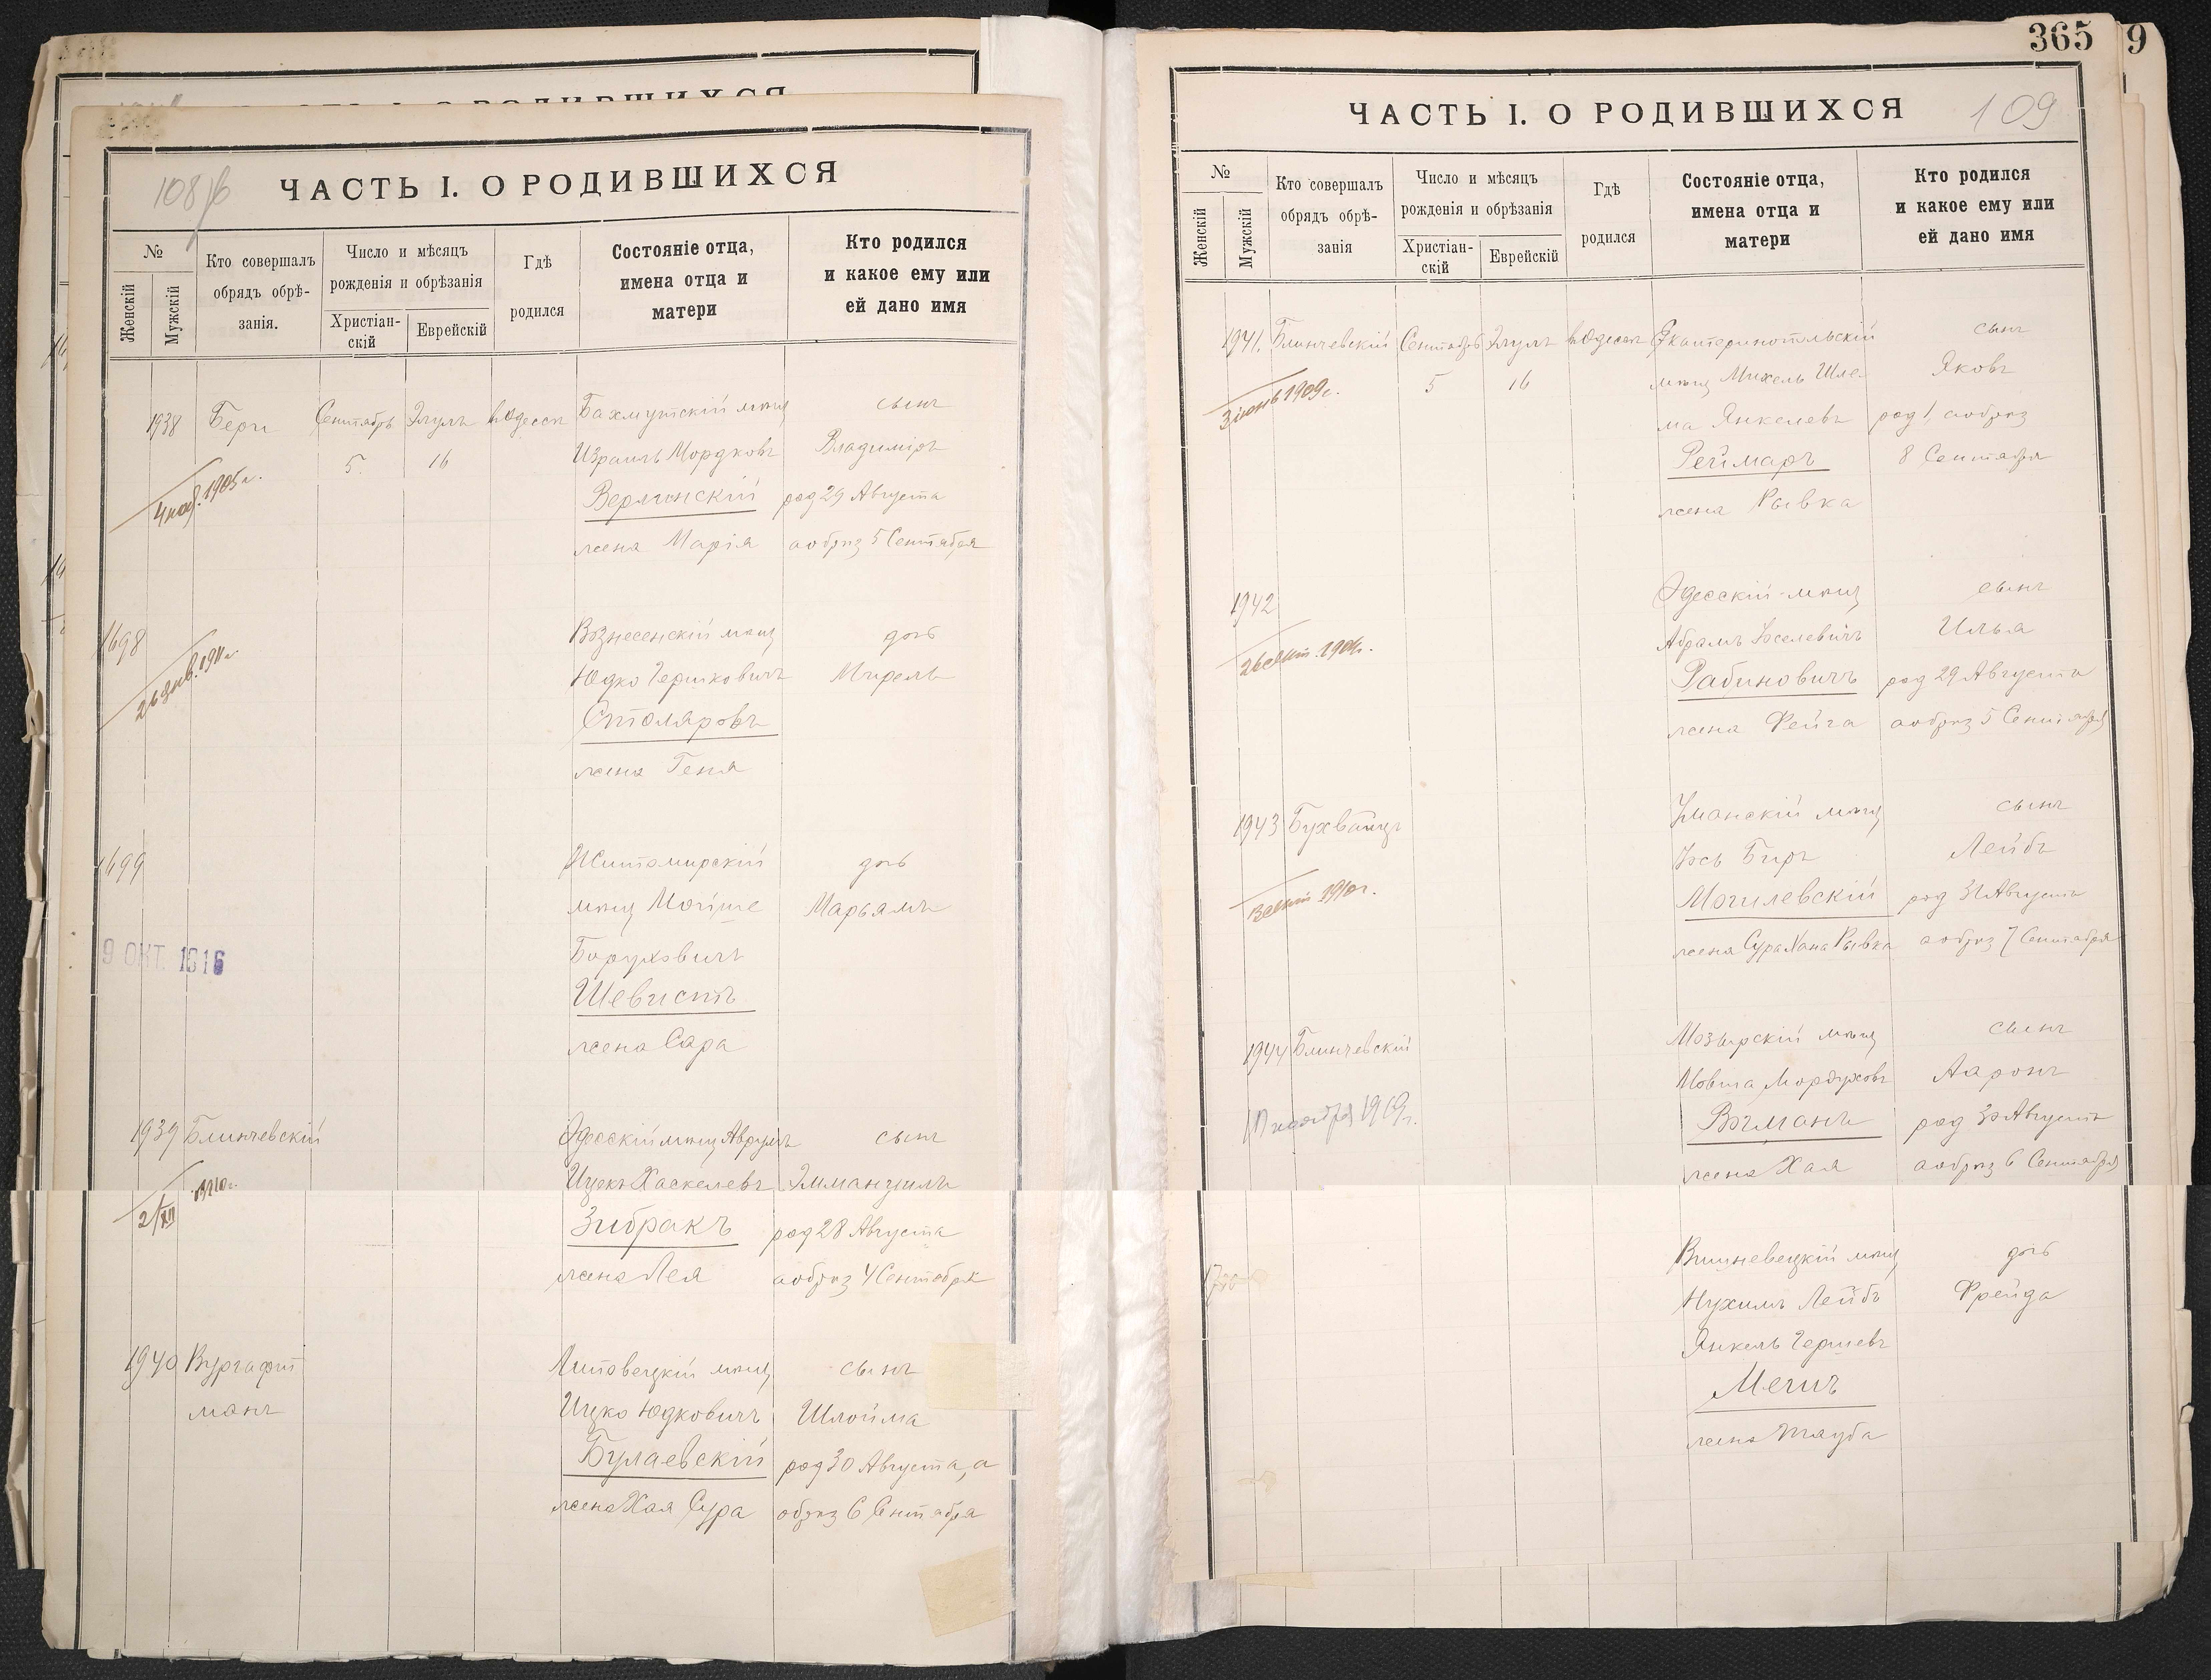 ЧАСТЬ I. О РОДИВШИХСЯ
108
№
Женскій
Мужскій
Кто совершалъ
обрядъ обрѣ-
занія.
Число и мѣсяцъ
рожденія и обрѣзанія
Христіан-
скій
Еврейскій
Гдѣ
родился
Состояніе отца,
имена отца и
матери
Кто родился
и какое ему или
ей дано имя
1938 Берг Сентябрь Элулъ въ Одессѣ Бахмутскій мѣщ сынъ
5 16 Израиль Мордковъ Владиміръ
4 1905 г. род 29 Августа
жена Марія а обрѣз 5 Сентября
1698 Вознесенскій мѣщ дочь
26 янв. 1911 г. Юдко Гершковичъ Мирель
Столяровъ
жена Геня
1699 Житомирскій дочь
мѣщ Марьямъ
9 ОКТ. 1916 Боруховичъ
Шевистъ
жена Сара
1939 Блинчевскій Одесскій мѣщ Аврумъ сынъ
Ицекъ Хаскелевъ Эммануилъ
2/XII 1910 г. Зибракъ род 28 Августа
жена Лея а обрѣз 4 Сентября
1940 Вургафт Липовецкій мѣщ сынъ
манъ Ицко Юдковичъ Шлойма
Булаевскій род 30 Августа, а
жена Хая Сура обрѣз 6 Сентября
365
9
ЧАСТЬ I. О РОДИВШИХСЯ
109
№
Женскій
Мужскій
Кто совершалъ
обрядъ обрѣ-
занія
Число и мѣсяцъ
рожденія и обрѣзанія
Христіан-
скій
Еврейскій
Гдѣ
родился
Состояніе отца,
имена отца и
матери
Кто родился
и какое ему или
ей дано имя
1941. Блинчевскій Сентябрь Элулъ въ Одессѣ Екатеринопольскій сынъ
3 іюнь 1909 г. 5 16 мѣщ Михель Шле- Яковъ
ма Янкелевъ род 1, а обрѣз
Реймаръ 8 Сентября
жена Рывка
1942 Одесскій мѣщ сынъ
26 1904. Абрамъ Іоселевичъ Илья
Рабиновичъ род 29 Августа
жена Фейга а обрѣз 5 Сентября
1943 Бухвайцъ Уманскій мѣщ сынъ
Іось Беръ Лейбъ
1910 г. Могилевскій род 31 Августа
жена Сура Хана Рывка а обрѣз 7 Сентября
1944 Блинчевскій Мозырскій мѣщ сынъ
Мовша Мордуховъ Ааронъ
17 ноября 1909 г. род 30 Августа
жена Хая а обрѣз 6 Сентября
1700 Вишневецкій мѣщ дочь
Нухимъ Лейбъ Фрейда
Янкель Гершевъ
жена Тауба